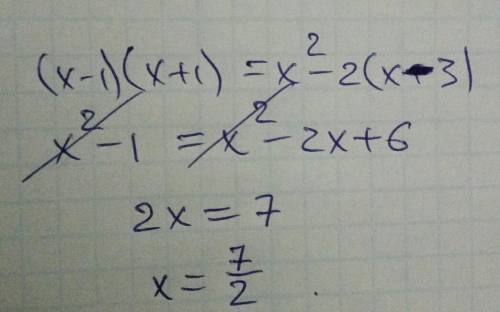 (x-1)(x+1) = x² - 2(x-3)
x² - 1 = x² - 2x + 6
2x = 7
x = 7/2